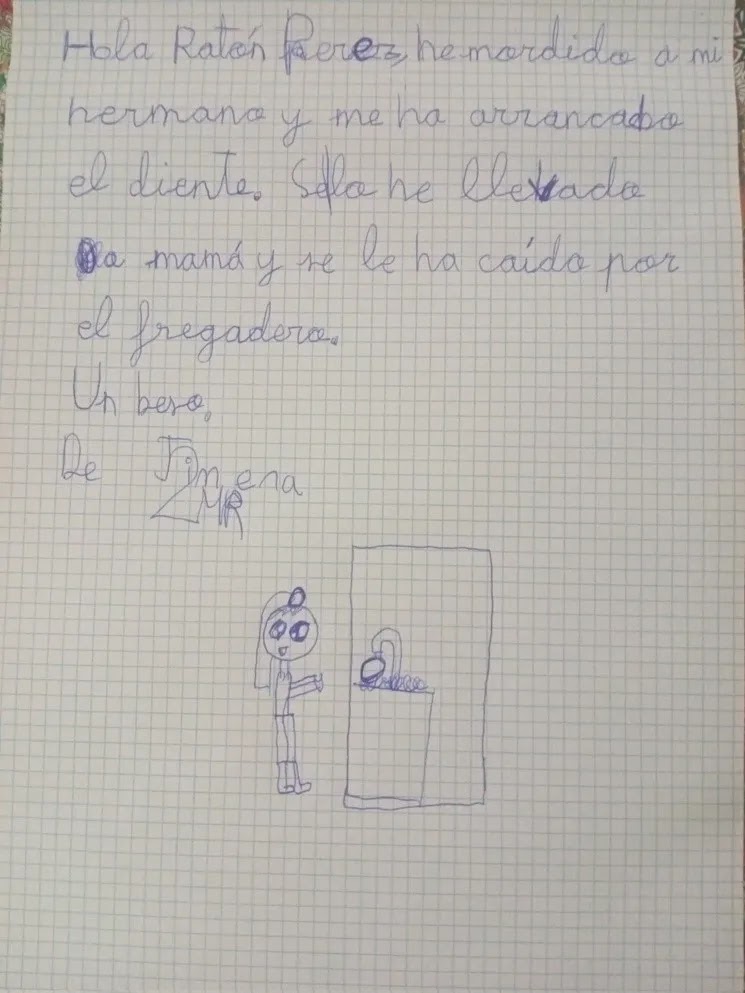 Hola Ratón Perez, he mordido a mi
hermano y me ha arrancado
el diente. Selo he llevado
a mamá y se le ha caído por
el fregadero.
Un beso.
De Jimena
MR